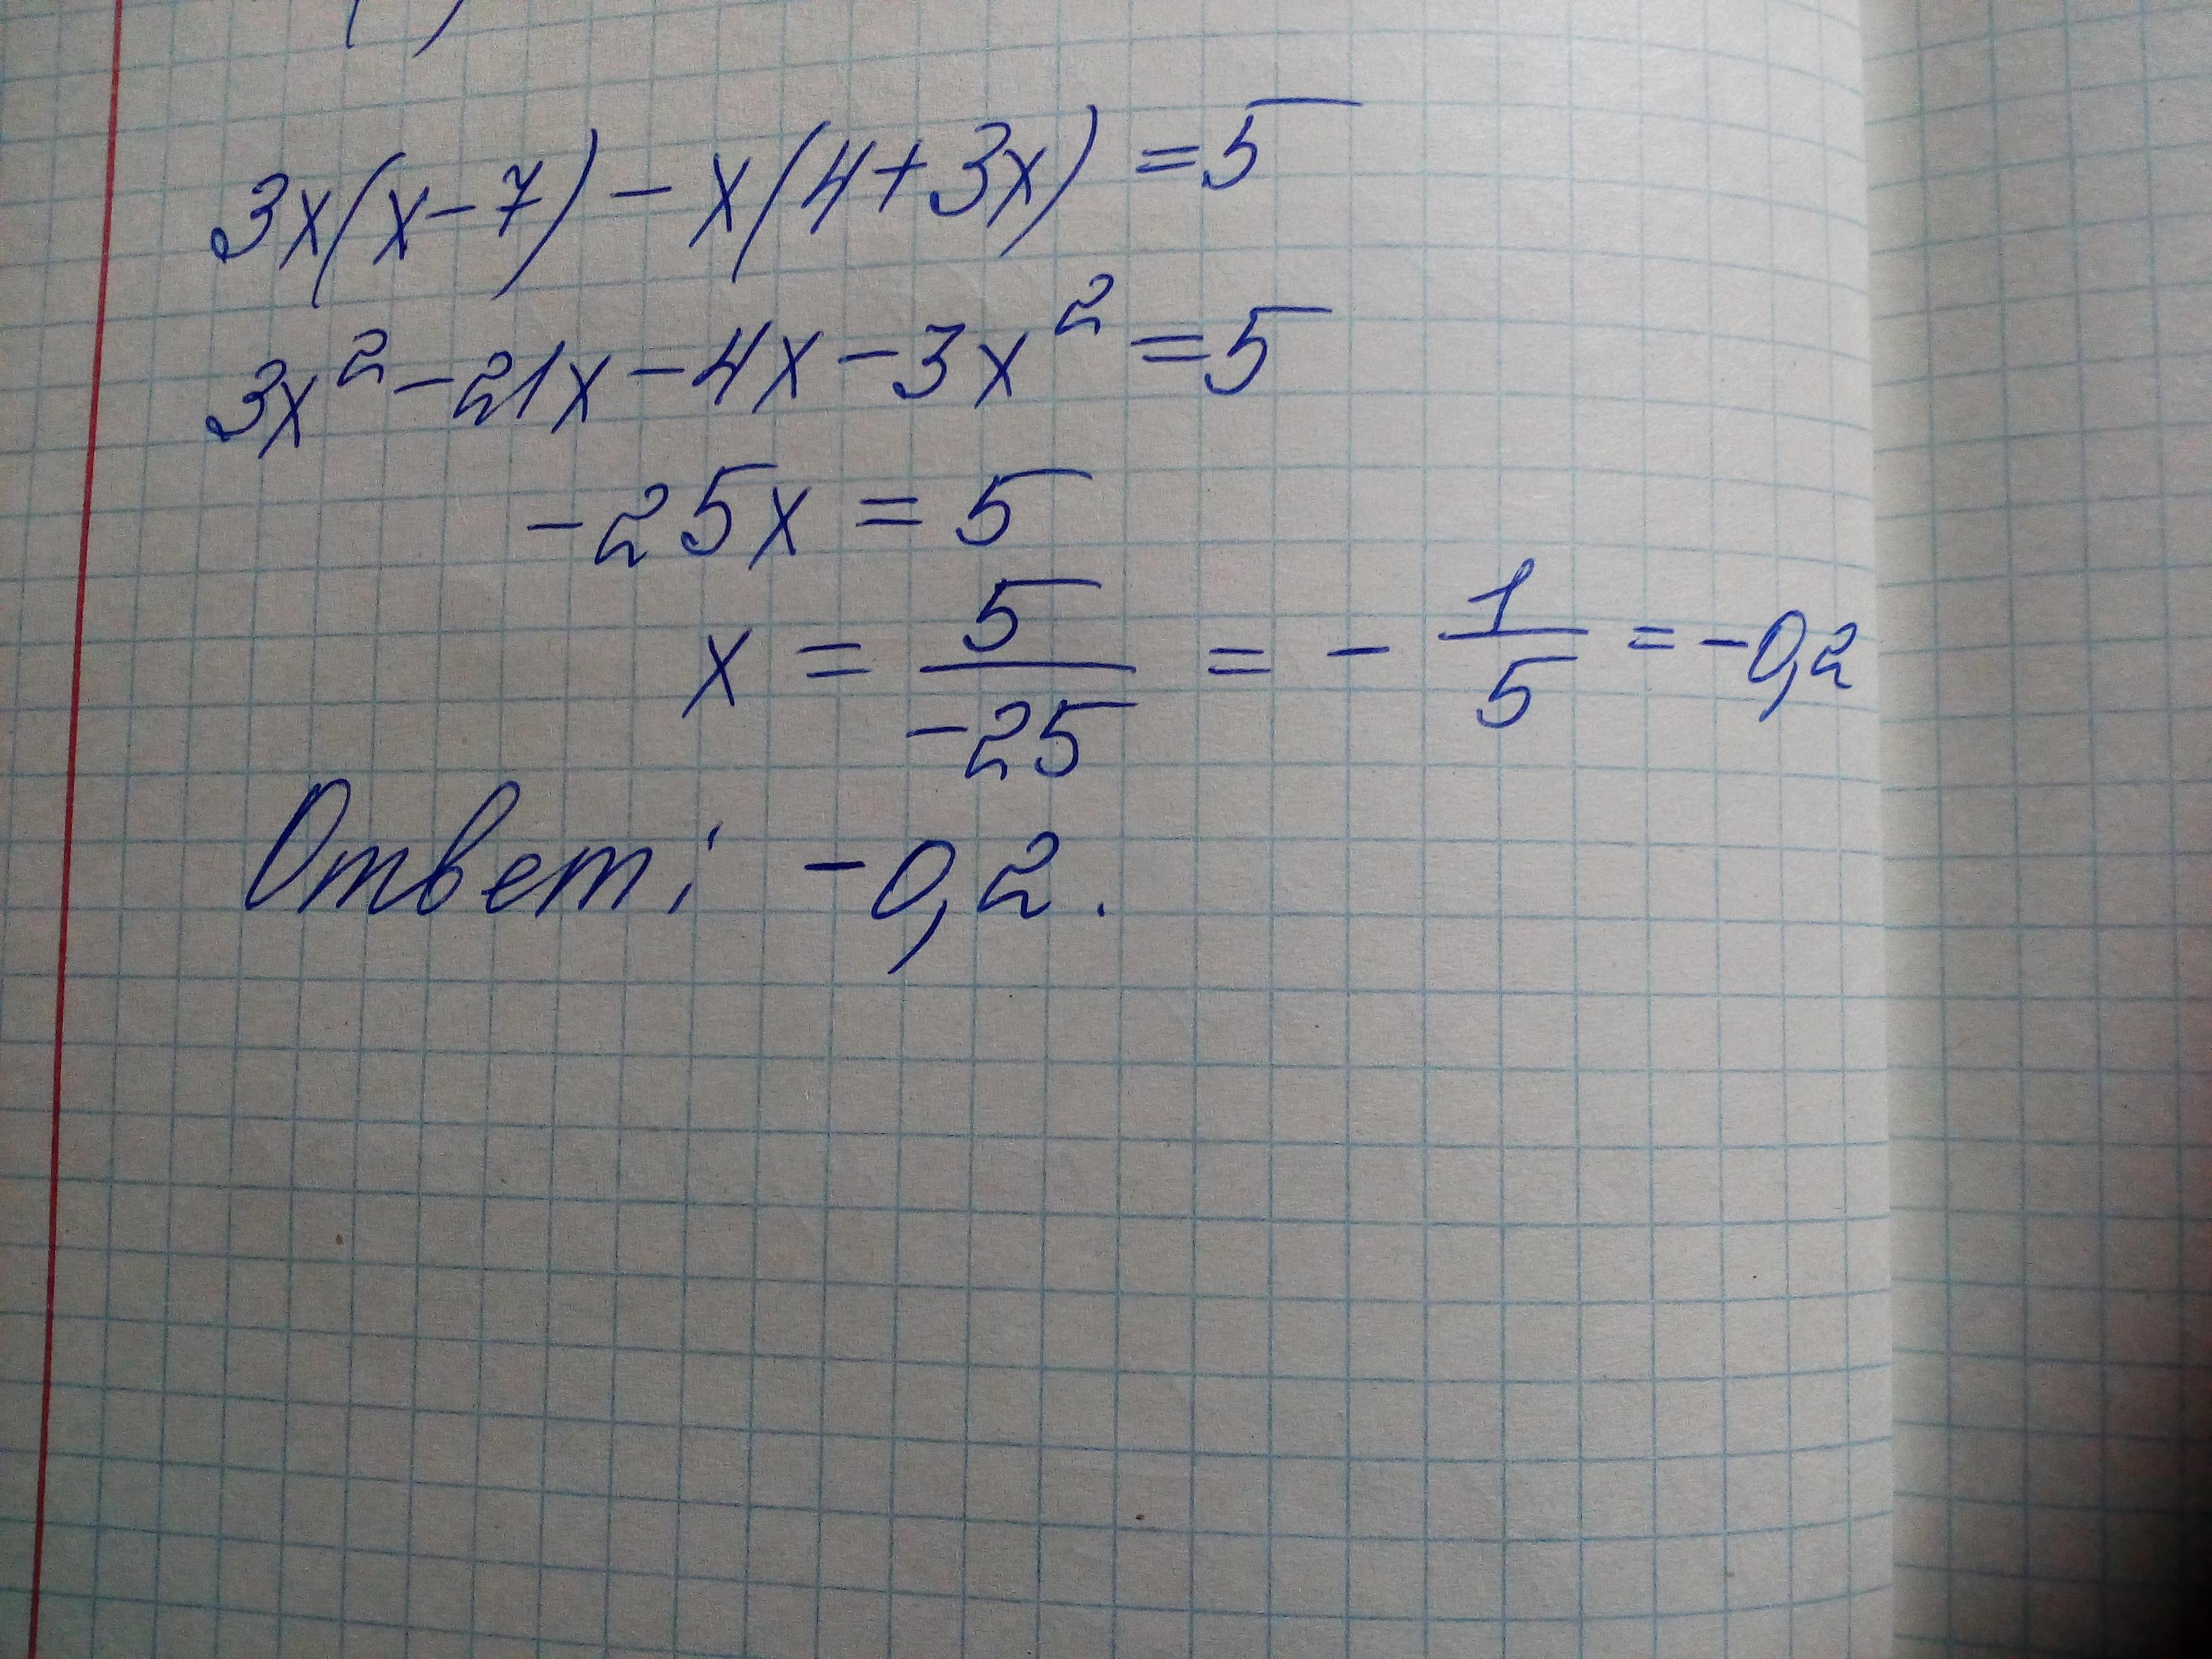 3x(x-7)-x(4+3x)=5
3x²-21x-4x-3x²=5
-25x=5
x = 5/-25 = - 1/5 = -0,2
Ответ: -0,2.